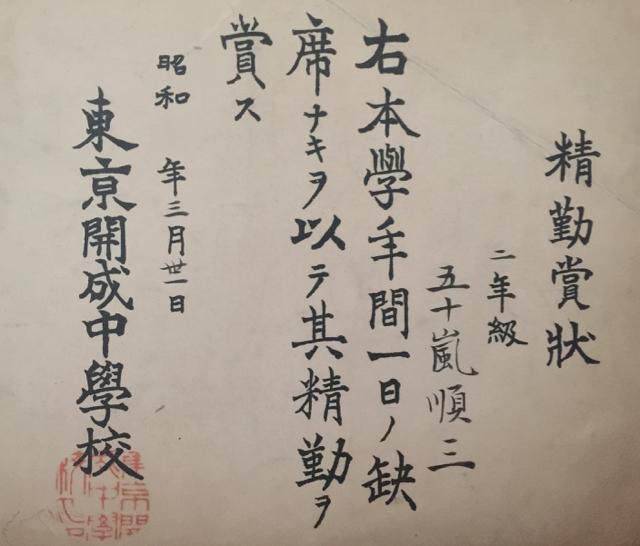 精勤賞状
二年級
五十嵐順三
右本學年間一日ノ缺
席ナキヲ以テ其精勤ヲ
賞ス
昭和 年三月丗一日
東京開成中學校